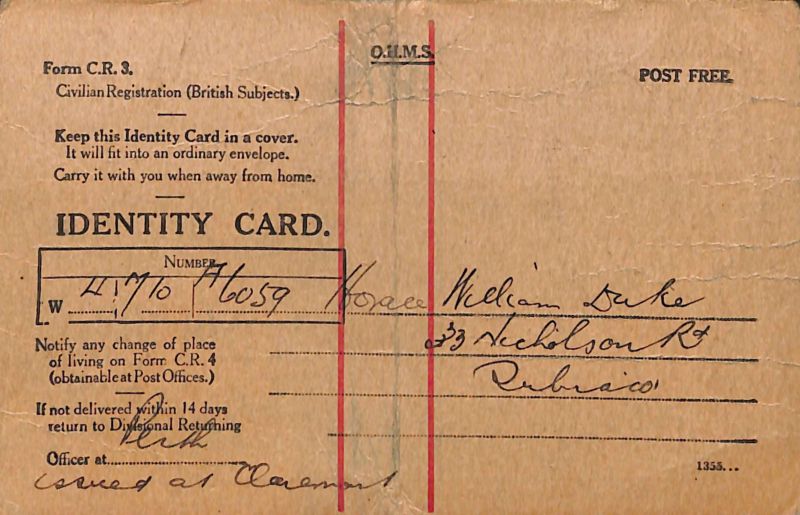 O.H.M.S.
Form C.R. 3.
POST FREE.
Civilian Registration (British Subjects.)
Keep this Identity Card in a cover.
It will fit into an ordinary envelope.
Carry it with you when away from home.
IDENTITY CARD.
NUMBER
W 4 710 H6059
Horace William Duke
Notify any change of place
of living on Form C.R. 4
(obtainable at Post Offices.)
33 Nicholson Rd
Subiaco
If not delivered within 14 days
return to Divisional Returning
Officer at Perth
issued at Claremont
1355...